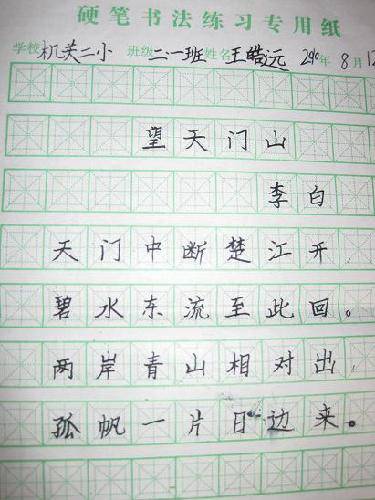 硬笔书法练习专用纸
学校机关二小 班级二一班姓名王皓远 年8月12
望天门山
李白
天门中断楚江开
碧水东流至此回。
两岸青山相对出
孤帆一片日边来。